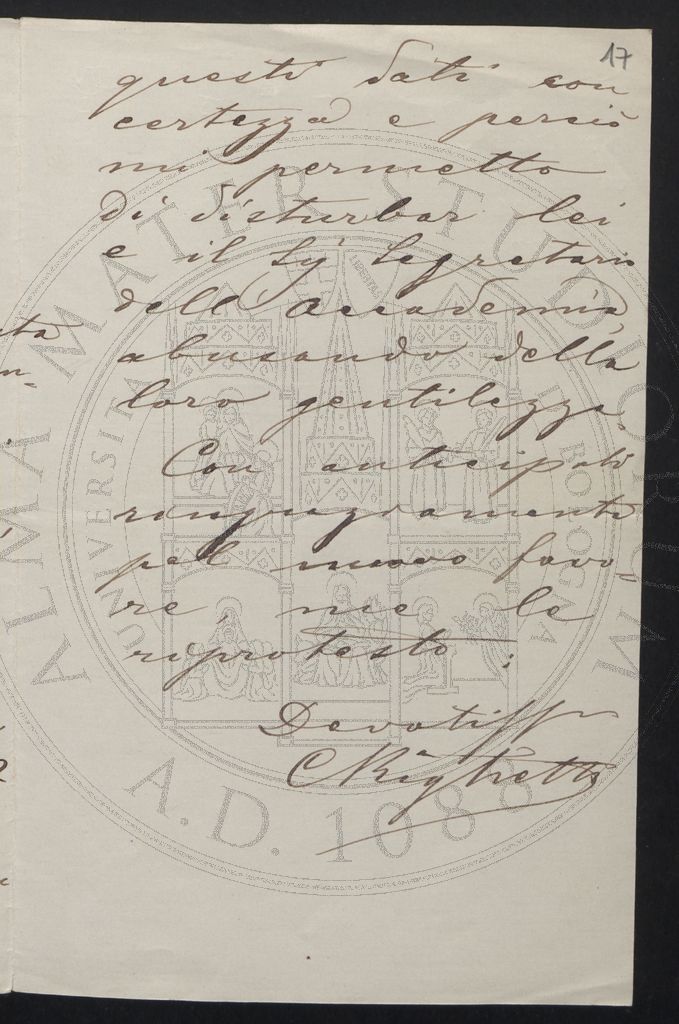 17
questi dati con
certezza e perciò
mi permetto
di disturbar lei
e il Sigr Segretario
dell'Accademia,
abusando della
loro gentilezza.
Con anticipati
ringraziamenti
pel nuovo favo-
re, me le
riprotesto:
Devotiss
C Righetti
ALMA MATER STUDIORUM
UNIVERSITA
BOLOGNA
LIBERTAS
A.D. 1088